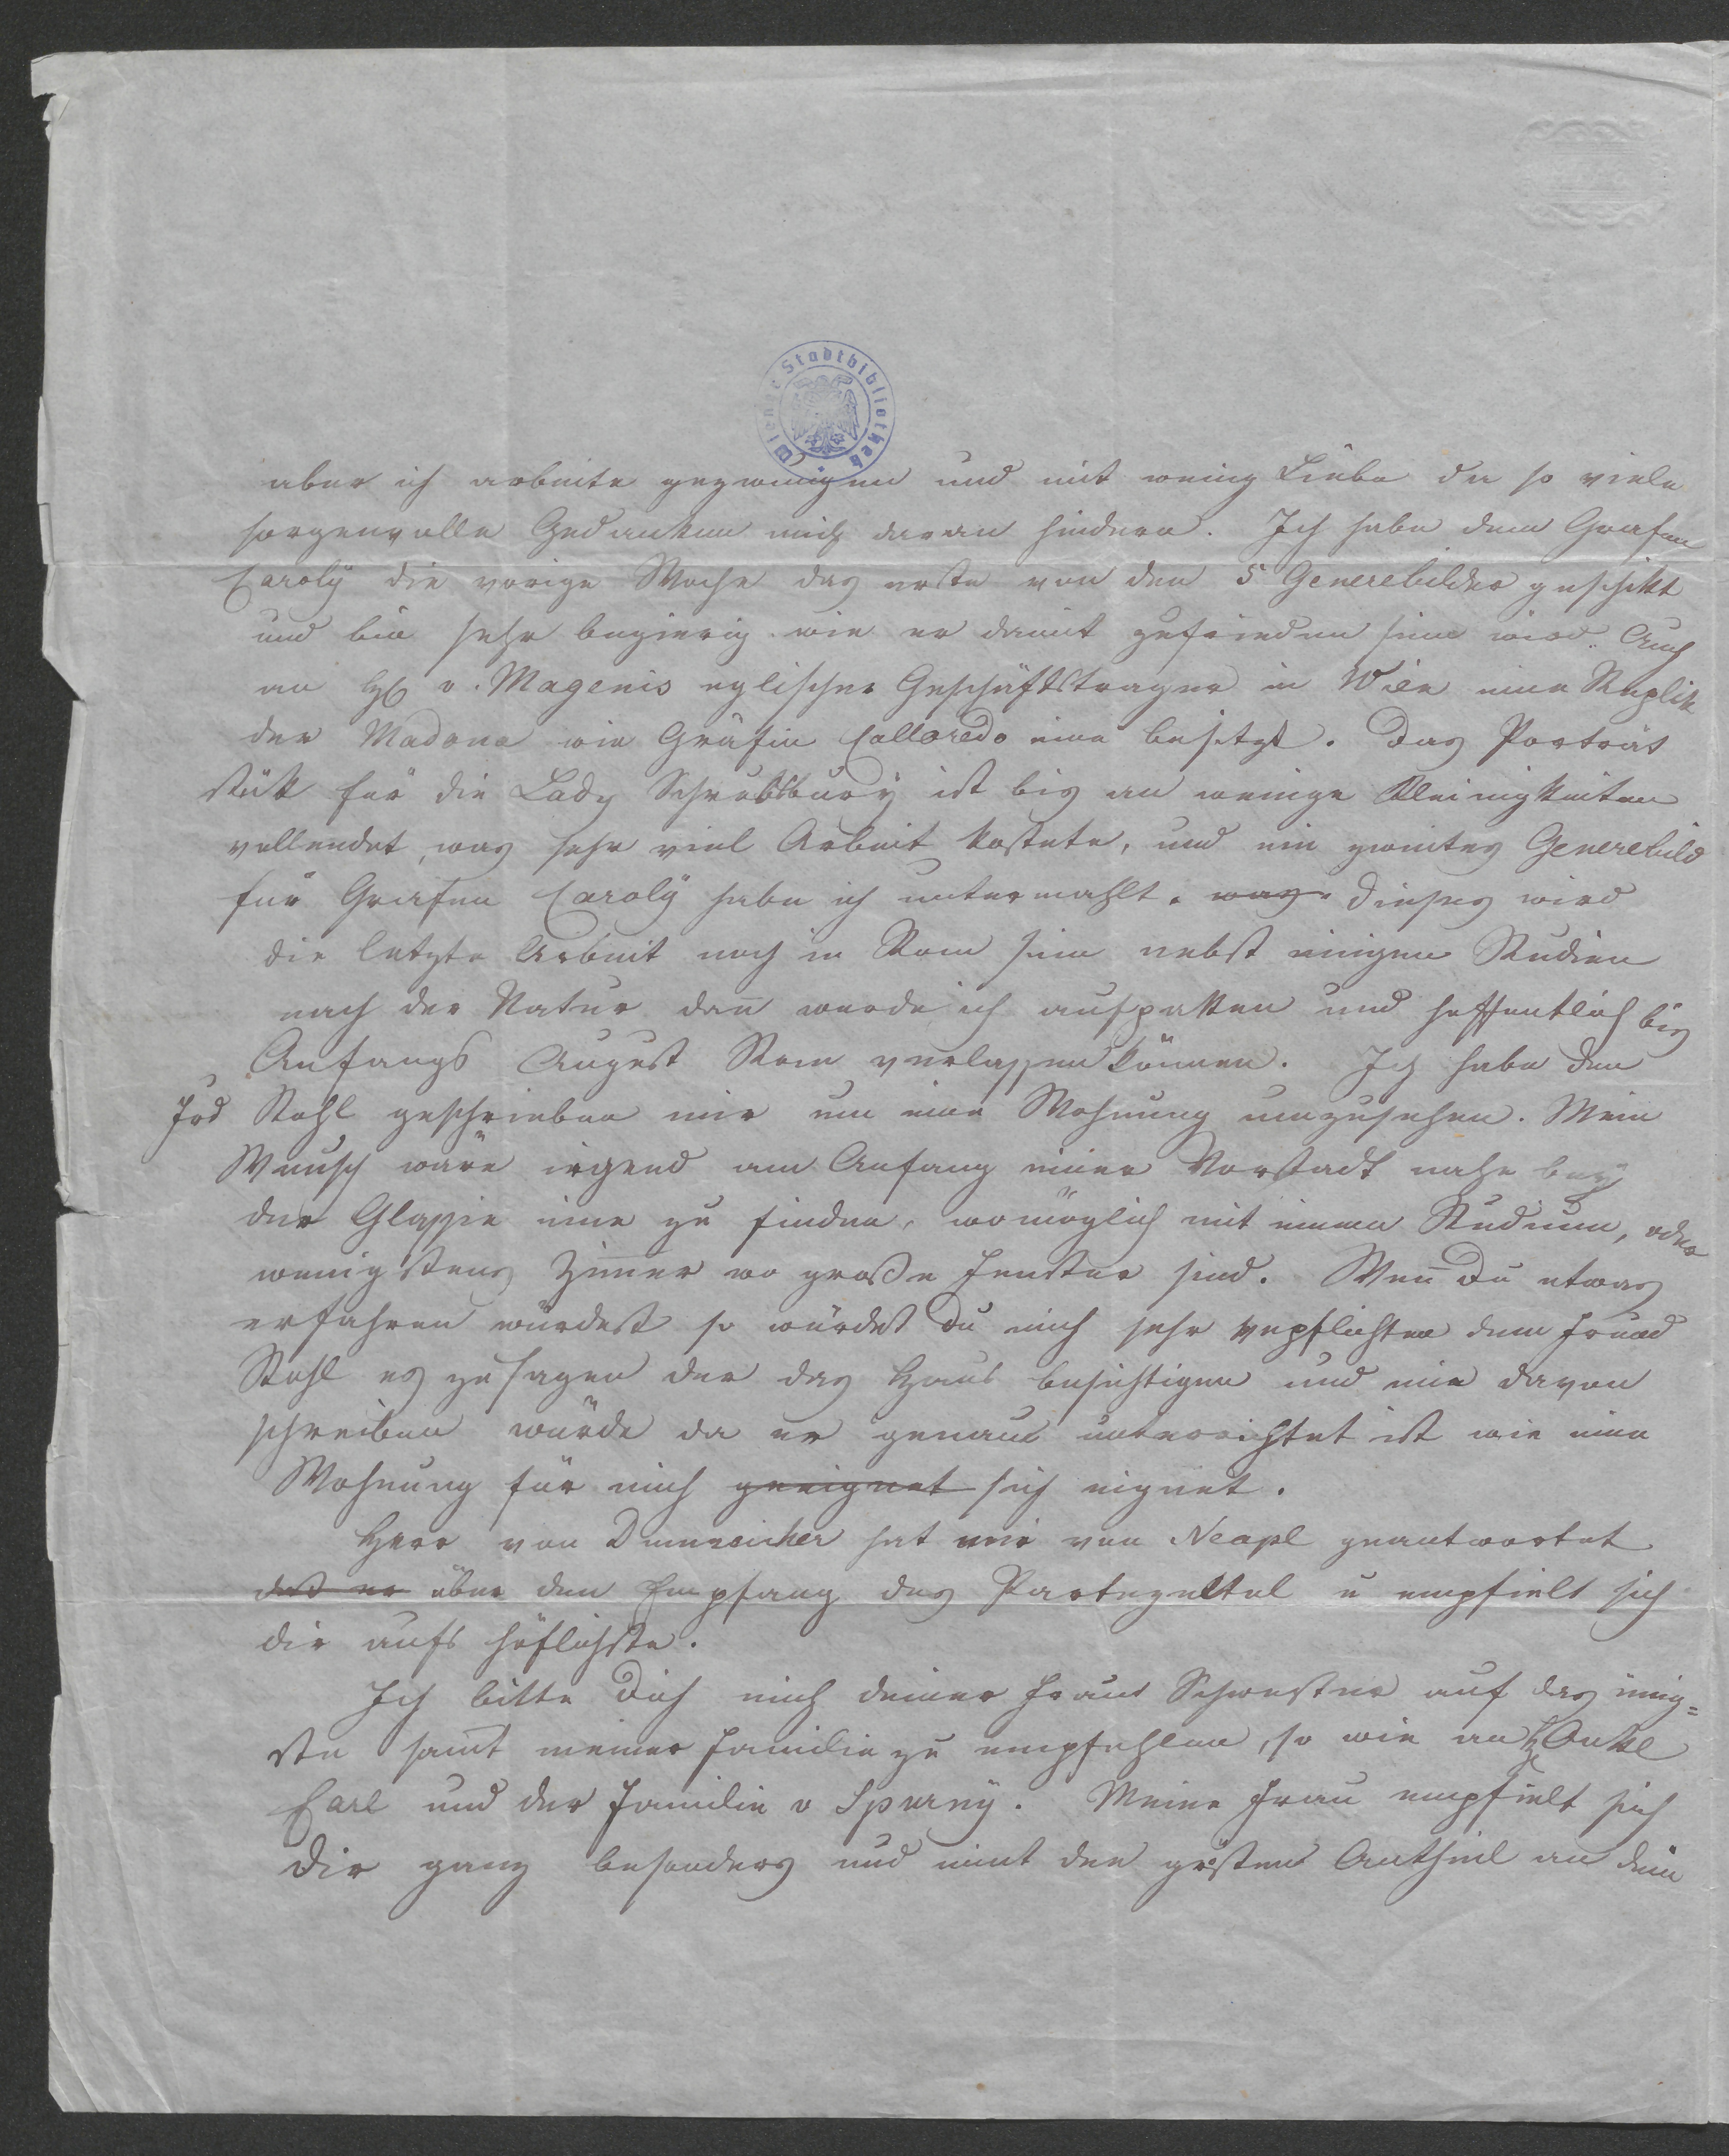 Wiener Stadtbibliothek
aber ich arbeite gezwungen und mit wenig Liebe da so viele
sorgenvolle Gedanken mich daran hindern. Ich habe dem Grafen
Caroly die vorige Woche das erste von den 5 Generebilder geschikt
und bin sehr begierig wie er damit zufrieden sein wird. Auch
an H v. Magenis eglischer Geschäftstrager in Wien eine Replik
der Madona wie Gräfin Colloredo eine besitzt. Das Porträt
stük für die Lady Schrebsbury ist bis an wenige Kleinigkeiten
vollendet, was sehr viel Arbeit kostete, und ein zweites Generebild
für Grafen Caroly habe ich untermahlt. was Dieses wird
die letzte Arbeit noch in Rom sein nebst einigen Studien
nach der Natur dan̄ werde ich aufpakken und hoffentlich bis
Anfangs August Rom verlassen können. Ich habe den
Frd Stohl geschrieben mir um eine Wohnung umzusehen. Mein
Wunsch wäre irgend am Anfang einer Vorstadt nahe bey
der Glassie eine zu finden, womöglich mit einem Studium, oder
wenigstens Zim̄er wo große Fenster sind. Wen̄ Du etwas
erfahren würdest so würdest Du mich sehr verpflichten dem Freund
Stohl es zu sagen der das Haus besichtigen und mir davon
schreiben würde da er genau unterrichtet ist wie eine
Wohnung für mich geeignet sich eignet.
Herr von Dumreicher hat mir von Neapl geantwortet
daß er über den Empfang des Partezettel u empfielt sich
dir aufs höflichste.
Ich bitte Dich mich deiner Frau Schwester auf das inig=
ste sam̄t meiner Familie zu empfehlen, so wie an H Onkl
Carl und der Familie v Spurny. Meine Frau empfielt sich
Dir ganz besonders und nimt den grösten Antheil an dein